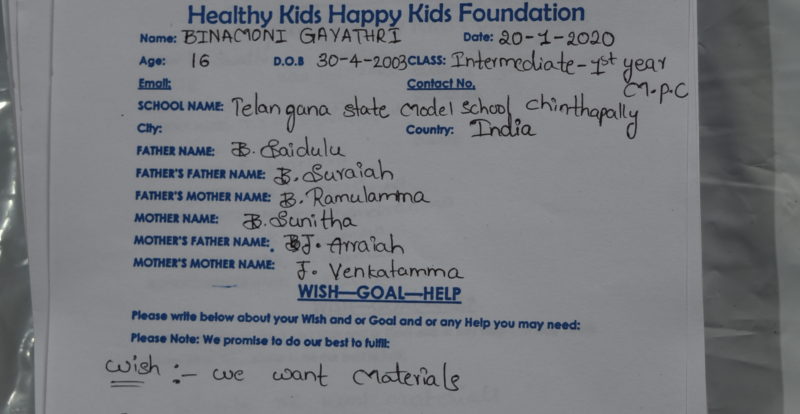 Healthy Kids Happy Kids Foundation
Name: BINAMONI GAYATHRI Date: 20-1-2020
Age: 16 D.O.B 30-4-2003 CLASS: Intermediate-1st year
M.P.C
Email: Contact No.
SCHOOL NAME: Telangana state model school chinthapally
City: Country: India
FATHER NAME: B. Saidulu
FATHER'S FATHER NAME: B. Suraiah
FATHER'S MOTHER NAME: B. Ramulamma
MOTHER NAME: B. Sunitha
MOTHER'S FATHER NAME: J. Arraiah
MOTHER'S MOTHER NAME: J. Venkatamma
WISH—GOAL—HELP
Please write below about your Wish and or Goal and or any Help you may need:
Please Note: We promise to do our best to fulfil:
wish :- we want materials